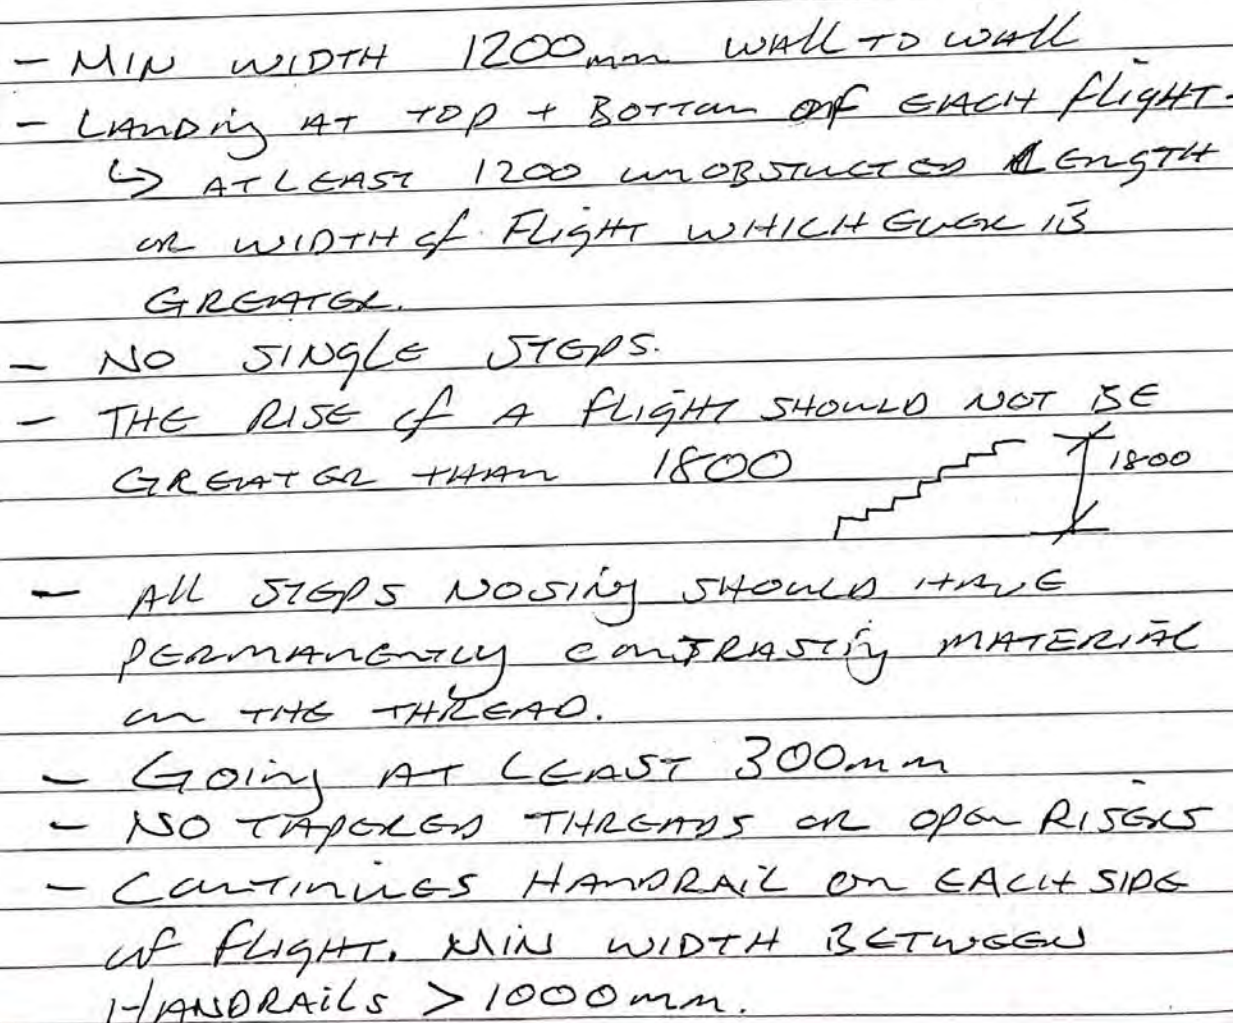 - MIN WIDTH 1200mm WALL TO WALL
- LANDING AT TOP + BOTTOM OF EACH FLIGHT.
↳ AT LEAST 1200 UNOBSTUCTED LENGTH
OR WIDTH OF FLIGHT WHICH EVER IS
GREATER.
- NO SINGLE STEPS.
- THE RISE OF A FLIGHT SHOULD NOT BE
GREATER THAN 1800
1800
- ALL STEPS NOSING SHOULD HAVE
PERMANENTLY CONTRASTING MATERIAL
ON THE THREAD.
- GOING AT LEAST 300mm
- NO TAPERED THREADS OR OPEN RISERS
- CONTINUES HANDRAIL ON EACH SIDE
OF FLIGHT. MIN WIDTH BETWEEN
HANDRAILS > 1000mm.